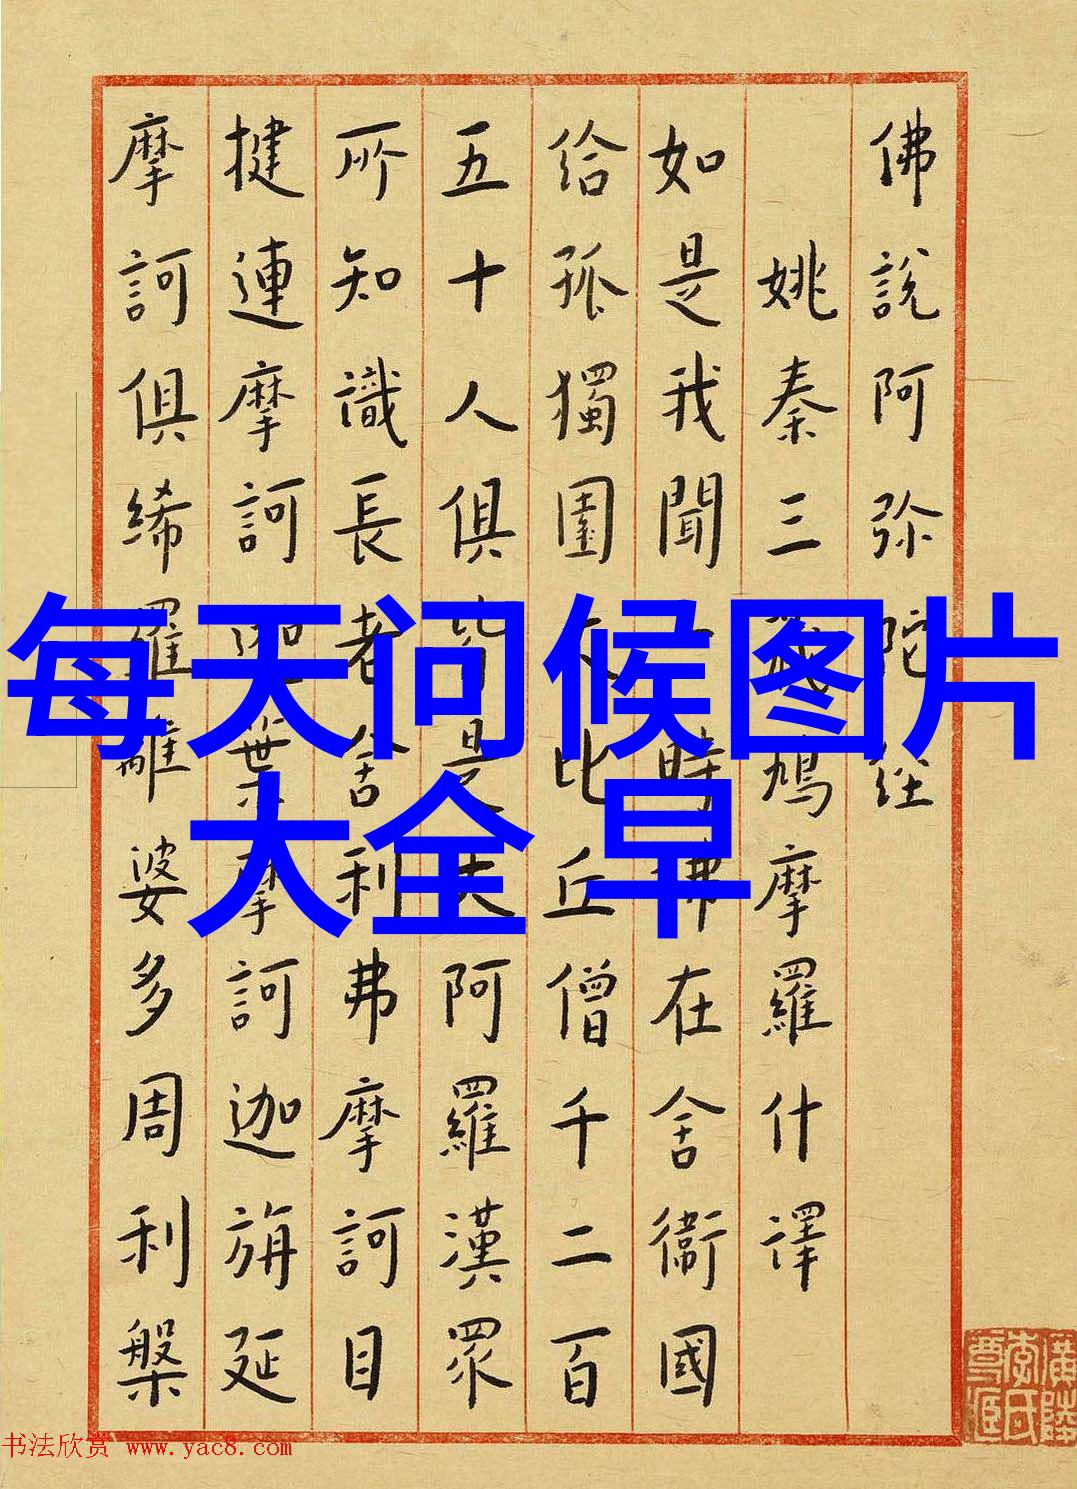 佛說阿弥陀経
姚秦三藏鳩摩羅什譯
如是我聞一時佛在舍衞國
給孤獨園大比丘僧千二百
五十人俱皆是大阿羅漢眾
所知識長老舍利弗摩訶目
揵連摩訶迦葉摩訶迦旃延
摩訶俱絺羅離婆多周利槃
每天问候图片
大全 早
书法欣赏 www.yac8.com